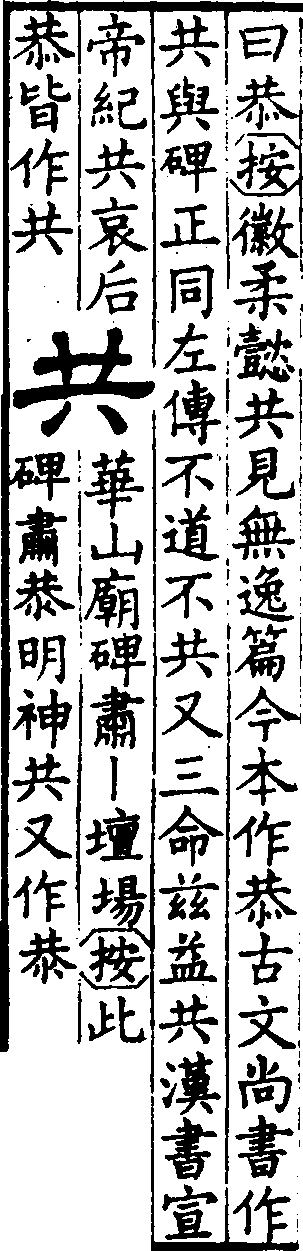 曰恭按徽柔懿共見無逸篇今本作恭古文尚書作
共與碑正同左傳不道不共又三命茲益共漢書宣
帝紀共哀后
恭皆作共
共
華山廟碑肅丨壇場按此
碑肅恭明神共又作恭